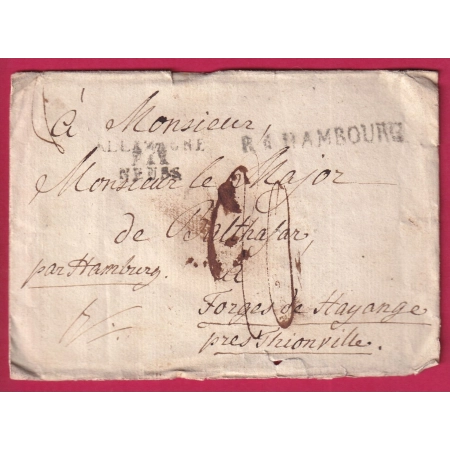 à Monsieur,
ALLEMAGNE
PAR
NEUSS
R. 4. HAMBOURG
Monsieur le Major
de Balthasar,
par Hamburg.
Forges de Hayange
pres Thionville.